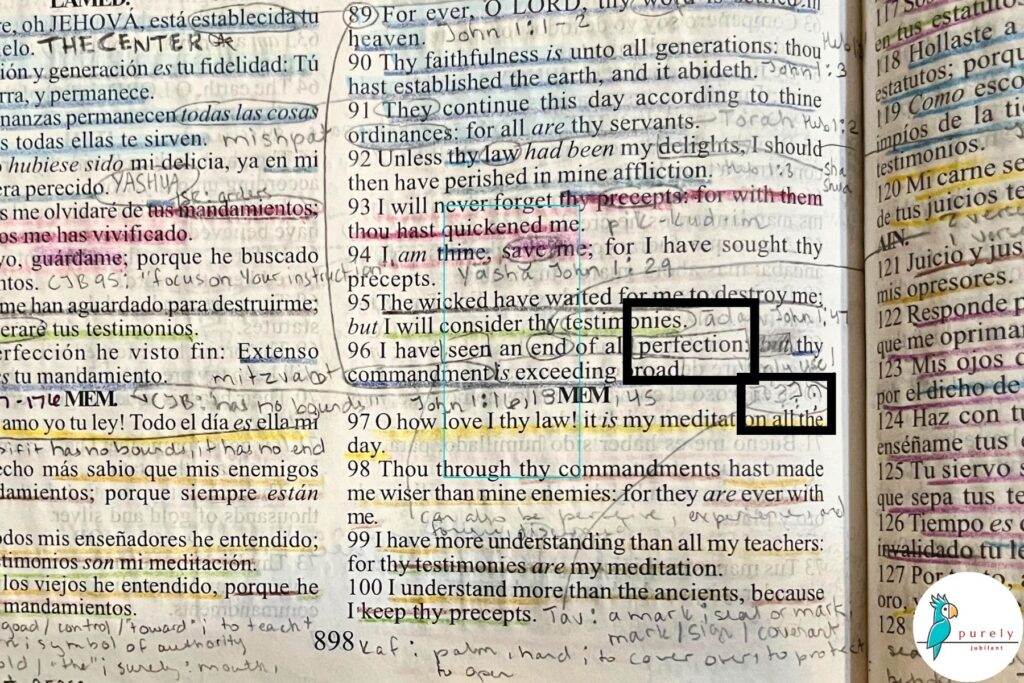 LAMED.
re, oh JEHOVÁ, está establecida tu
elo. THE CENTER
ción y generación es tu fidelidad: Tú
rra, y permanece.
nanzas permanecen todas las cosas
s todas ellas te sirven. mishpat
o hubiese sido mi delicia, ya en mi
era perecido. YASHUA
s me olvidaré de tus mandamientos;
os me has vivificado.
yo, guárdame; porque he buscado
ntos. CJB 95: "focus on Your instruction
me han aguardado para destruirme;
eraré tus testimonios.
erfección he visto fin: Extenso
es tu mandamiento. mitzvabt
7-176 MEM. CJB: has no bounds
amo yo tu ley! Todo el día es ella mi
if it has no bounds, it has no end
echo más sabio que mis enemigos
damientos; porque siempre están
odos mis enseñadores he entendido;
stimonios son mi meditación.
los viejos he entendido, porque he
mandamientos.
goad/control/"toward"; to teach
n is symbol of authority
old, "the"; surely: mouth,
89 For ever, O LORD, thy word is settled in
heaven. John 1:1-2
90 Thy faithfulness is unto all generations: thou
hast established the earth, and it abideth. John 1:3
91 They continue this day according to thine
ordinances: for all are thy servants. Torah
92 Unless thy law had been my delights, I should
then have perished in mine affliction.
93 I will never forget thy precepts: for with them
thou hast quickened me. pik-kudim
94 I am thine, save me; for I have sought thy
precepts. Yasha John 1:29
95 The wicked have waited for me to destroy me:
but I will consider thy testimonies. John 1:47
96 I have seen an end of all perfection: but thy
commandment is exceeding broad.
John 1:16, 18 MEM , 45
97 O how love I thy law! it is my meditation all the
day.
98 Thou through thy commandments hast made
me wiser than mine enemies: for they are ever with
me. can also be perceive, experience, and
99 I have more understanding than all my teachers:
for thy testimonies are my meditation.
100 I understand more than the ancients, because
I keep thy precepts. Tav: a mark; seal or mark,
mark/sign/covenant
898 Kaf: palm, hand; to cover over; to protect
to open
en tus estatutos
118 Hollaste a
estatutos; porque
119 Como esco
impíos de la ti
testimonios.
120 Mi carne se
de tus juicios te
AIN.
121 Juicio y jus
mis opresores.
122 Responde p
que me oprima
123 Mis ojos
por el dicho de
124 Haz con tu
enséñame tus
125 Tu siervo s
que sepa tus te
126 Tiempo es
invalidado tu le
127 Por
oro, y
128
purely
jubilant